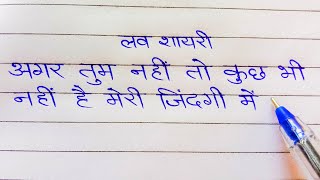 लव शायरी
अगर तुम नहीं तो कुछ भी
नहीं है मेरी जिंदगी में